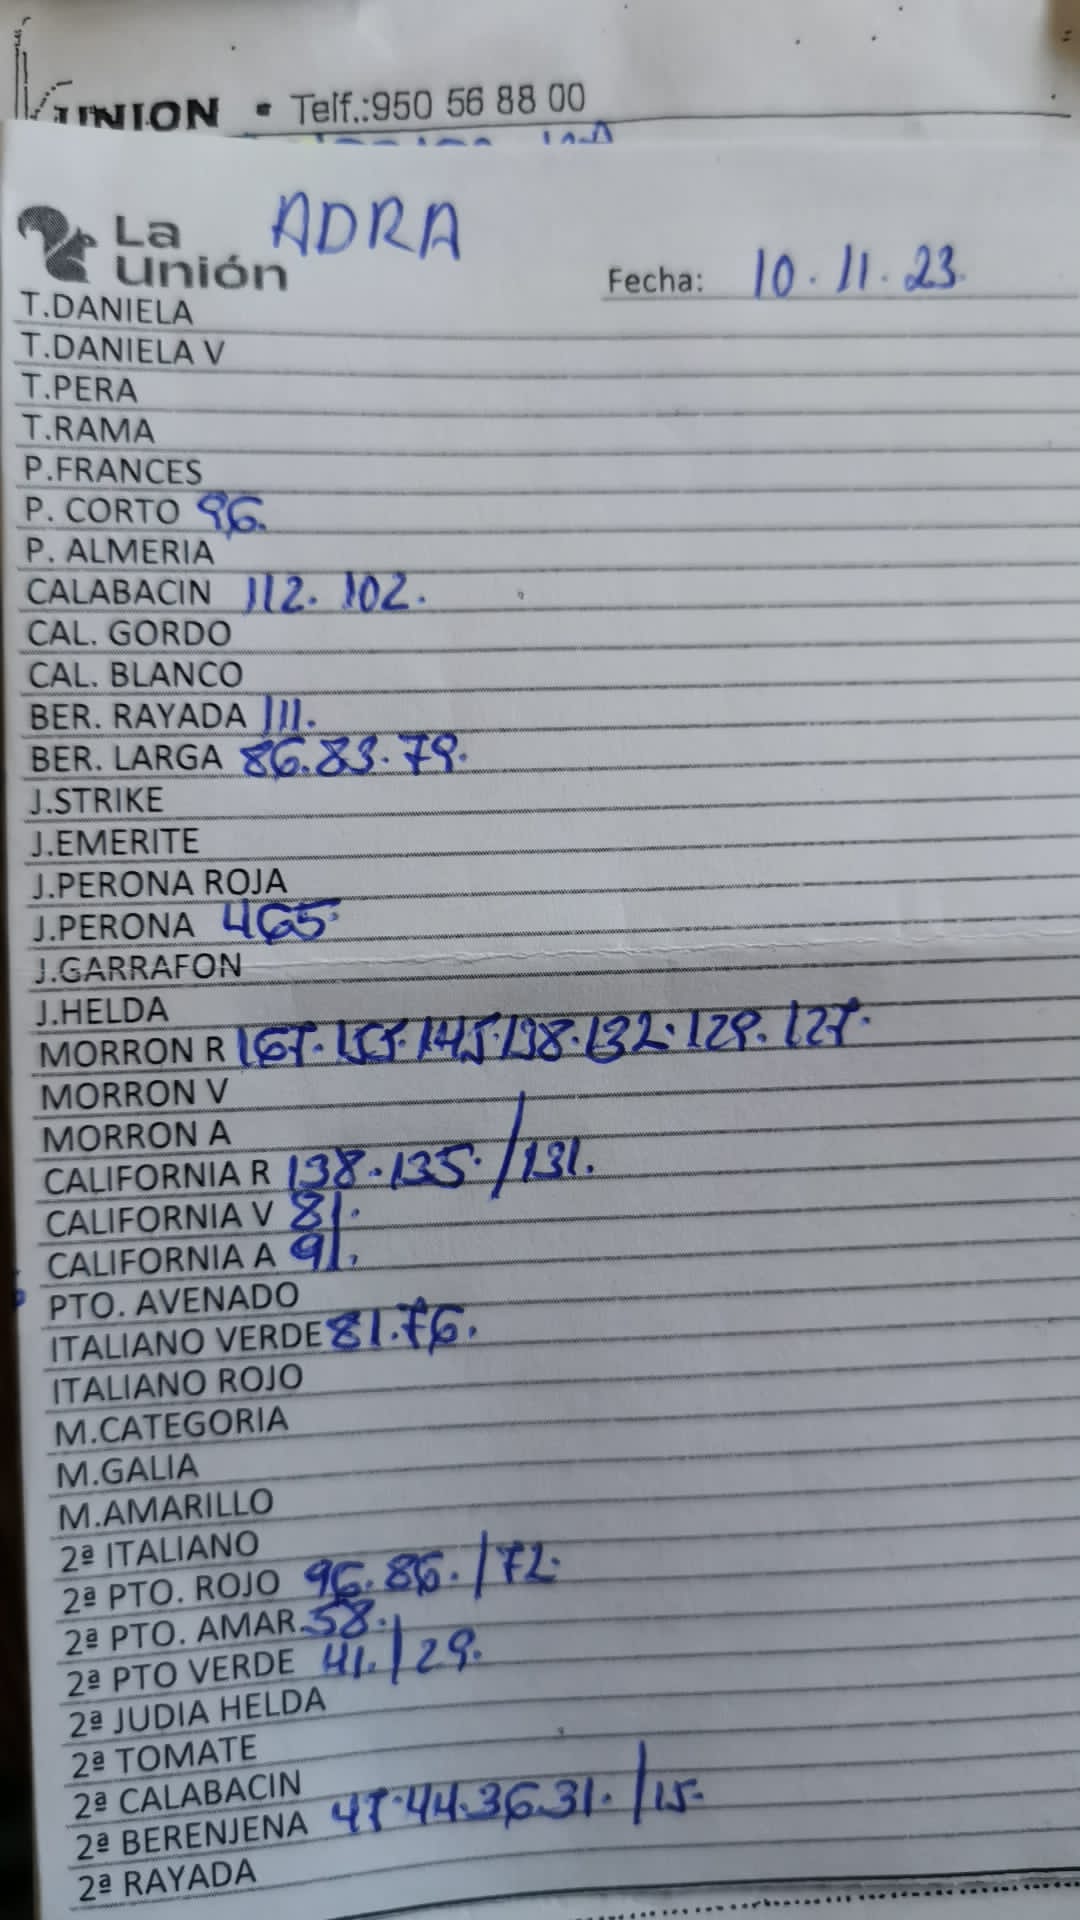 UNION • Telf.:950 56 88 00
La unión ADRA
Fecha: 10.11.23.
T.DANIELA
T.DANIELA V
T.PERA
T.RAMA
P.FRANCES
P. CORTO 96.
P. ALMERIA
CALABACIN 112. 102.
CAL. GORDO
CAL. BLANCO
BER. RAYADA 111.
BER. LARGA 86.83.79.
J.STRIKE
J.EMERITE
J.PERONA ROJA
J.PERONA 465.
J.GARRAFON
J.HELDA
MORRON R 167.155.145.138.132.129.127.
MORRON V
MORRON A
CALIFORNIA R 138.135./131.
CALIFORNIA V 81.
CALIFORNIA A 91.
PTO. AVENADO
ITALIANO VERDE 81.76.
ITALIANO ROJO
M.CATEGORIA
M.GALIA
M.AMARILLO
2ª ITALIANO
2ª PTO. ROJO 96.86./72.
2ª PTO. AMAR. 58.
2ª PTO VERDE 41./29.
2ª JUDIA HELDA
2ª TOMATE
2ª CALABACIN
2ª BERENJENA 47.44.36.31./15.
2ª RAYADA